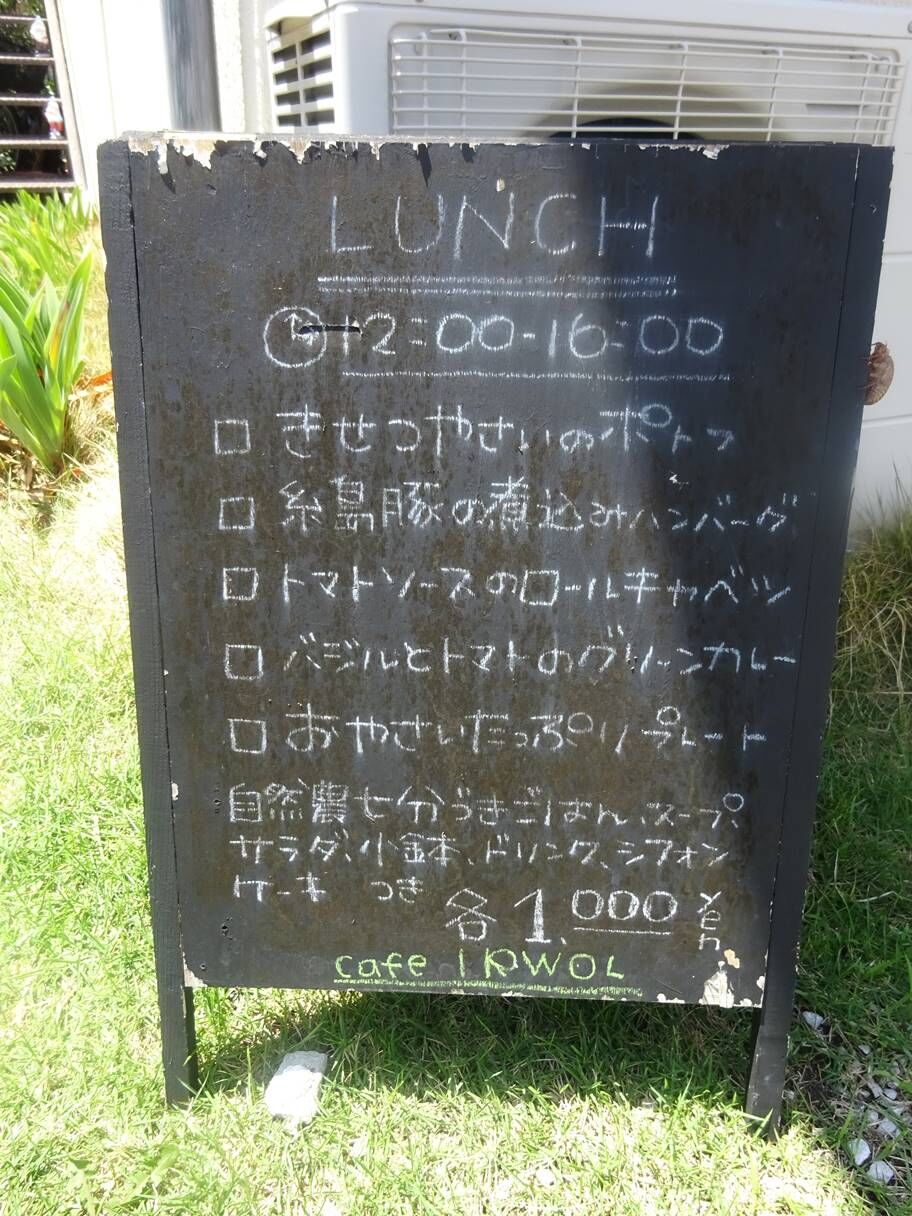 LUNCH
12:00-16:00
□ きせつやさいのポトフ
□ 糸島豚の煮込みハンバーグ
□ トマトソースのロールキャベツ
□ バジルとトマトのグリーンカレー
□ おやさいたっぷりプレート
自然農七分づきごはん、スープ、
サラダ、小鉢、ドリンク、シフォン
ケーキ つき
各 1.000 yen
cafe IRWOL